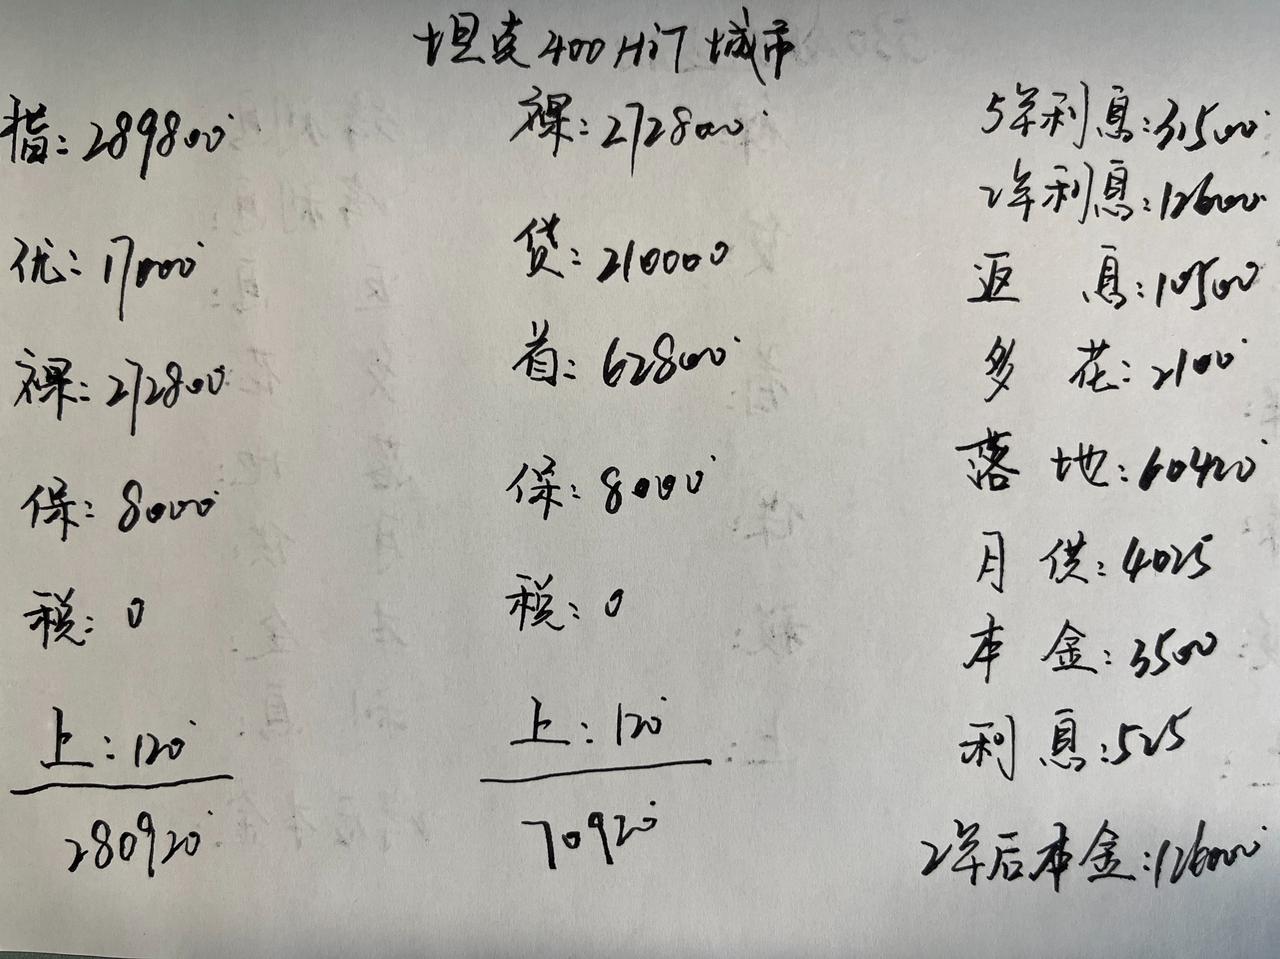 坦克400 Hi7 城市
指: 289800
优: 17000
裸: 272800
保: 8000
税: 0
上: 120
280920
裸: 272800
贷: 210000
首: 62800
保: 8000
税: 0
上: 120
70920
5年利息: 31500
2年利息: 12600
返息: 10500
多花: 2100
落地: 60420
月供: 4025
本金: 3500
利息: 525
2年后本金: 126000